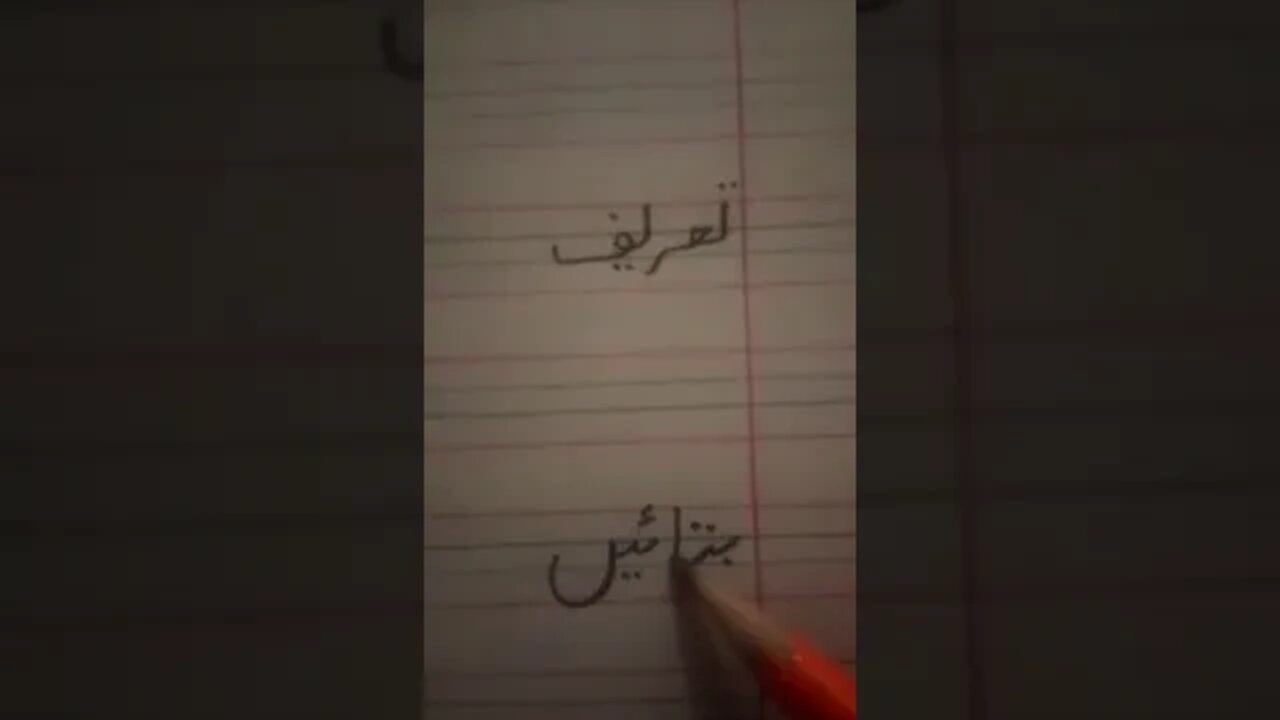 تعریف
بتائیں